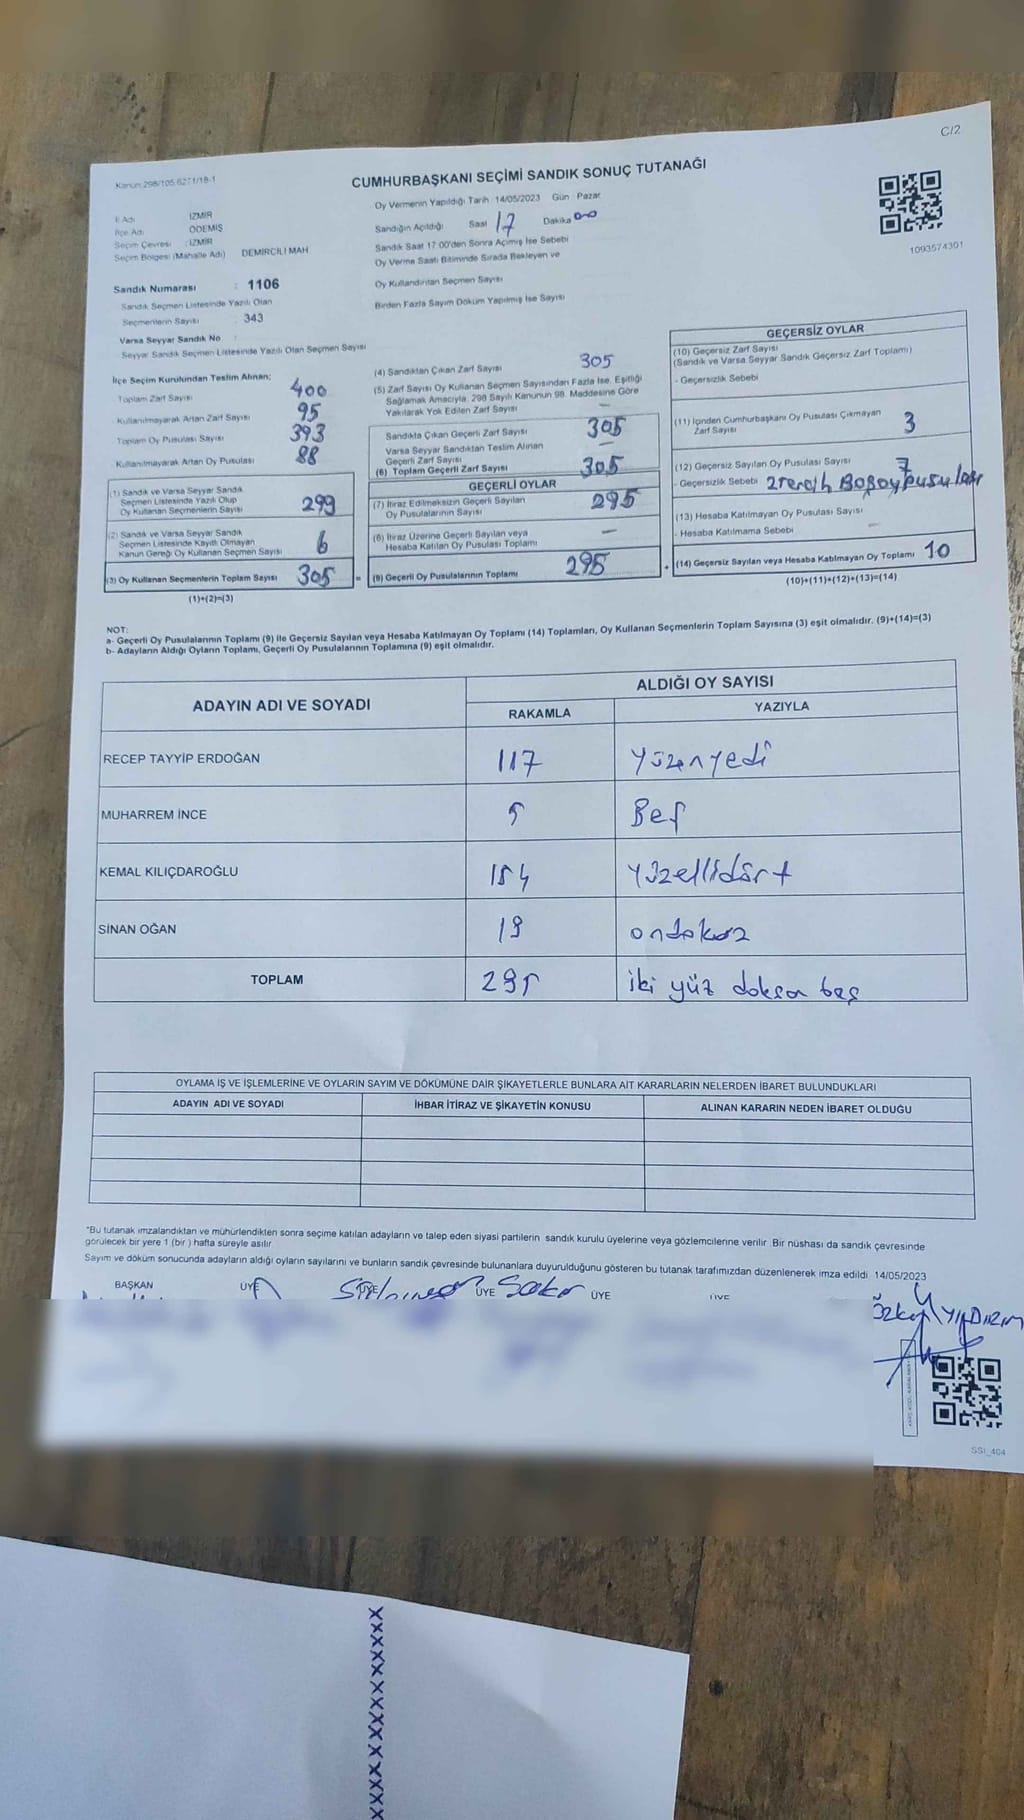 C/2
CUMHURBAŞKANI SEÇİMİ SANDIK SONUÇ TUTANAĞI
Oy Vermenin Yapıldığı Tarih 14/05/2023 Gün Pazar
İl Adı İZMİR
İlçe Adı ÖDEMİŞ
Seçim Çevresi : İZMİR
Seçim Bölgesi (Mahalle Adı) DEMİRCİLİ MAH
Sandığın Açıldığı Saat 17 Dakika 00
Sandık Saat 17.00'den Sonra Açımış İse Sebebi
Oy Verme Saati Bitiminde Sırada Bekleyen ve
Oy Kullandırılan Seçmen Sayısı
Birden Fazla Sayım Döküm Yapılmış İse Sayısı
1093574301
Sandık Numarası : 1106
Sandık Seçmen Listesinde Yazılı Olan
Seçmenlerin Sayısı : 343
Varsa Seyyar Sandık No
Seyyar Sandık Seçmen Listesinde Yazılı Olan Seçmen Sayısı
İlçe Seçim Kurulundan Teslim Alınan;
Toplam Zarf Sayısı 400
Kullanılmayarak Artan Zarf Sayısı 95
Toplam Oy Pusulası Sayısı 393
Kullanılmayarak Artan Oy Pusulası 88
(1) Sandık ve Varsa Seyyar Sandık
Seçmen Listesinde Yazılı Olup
Oy Kullanan Seçmenlerin Sayısı 299
(2) Sandık ve Varsa Seyyar Sandık
Seçmen Listesinde Kayıtlı Olmayan
Kanun Gereği Oy Kullanan Seçmen Sayısı 6
(3) Oy Kullanan Seçmenlerin Toplam Sayısı 305 =
(1)+(2)=(3)
(4) Sandıktan Çıkan Zarf Sayısı 305
(5) Zarf Sayısı Oy Kullanan Seçmen Sayısından Fazla İse, Eşitliği
Sağlamak Amacıyla, 298 Sayılı Kanunun 98. Maddesine Göre
Yakılarak Yok Edilen Zarf Sayısı —
Sandıkta Çıkan Geçerli Zarf Sayısı 305
Varsa Seyyar Sandıktan Teslim Alınan
Geçerli Zarf Sayısı —
(6) Toplam Geçerli Zarf Sayısı 305
GEÇERLİ OYLAR
(7) İtiraz Edilmeksizin Geçerli Sayılan
Oy Pusulalarının Sayısı 295
(8) İtiraz Üzerine Geçerli Sayılan veya
Hesaba Katılan Oy Pusulası Toplamı —
(9) Geçerli Oy Pusulalarının Toplamı 295 +
GEÇERSİZ OYLAR
(10) Geçersiz Zarf Sayısı
(Sandık ve Varsa Seyyar Sandık Geçersiz Zarf Toplamı)
- Geçersizlik Sebebi
(11) İçinden Cumhurbaşkanı Oy Pusulası Çıkmayan
Zarf Sayısı 3
(12) Geçersiz Sayılan Oy Pusulası Sayısı 7
- Geçersizlik Sebebi 2 tercih Boş oy pusulası
(13) Hesaba Katılmayan Oy Pusulası Sayısı
- Hesaba Katılmama Sebebi —
(14) Geçersiz Sayılan veya Hesaba Katılmayan Oy Toplamı 10
(10)+(11)+(12)+(13)=(14)
NOT:
a- Geçerli Oy Pusulalarının Toplamı (9) ile Geçersiz Sayılan veya Hesaba Katılmayan Oy Toplamı (14) Toplamları, Oy Kullanan Seçmenlerin Toplam Sayısına (3) eşit olmalıdır. (9)+(14)=(3)
b- Adayların Aldığı Oyların Toplamı, Geçerli Oy Pusulalarının Toplamına (9) eşit olmalıdır.
ADAYIN ADI VE SOYADI ALDIĞI OY SAYISI
RAKAMLA YAZIYLA
RECEP TAYYİP ERDOĞAN 117 yüzonyedi
MUHARREM İNCE 5 Beş
KEMAL KILIÇDAROĞLU 154 yüzellidört
SİNAN OĞAN 19 ondokuz
TOPLAM 295 iki yüz doksan beş
OYLAMA İŞ VE İŞLEMLERİNE VE OYLARIN SAYIM VE DÖKÜMÜNE DAİR ŞİKAYETLERLE BUNLARA AİT KARARLARIN NELERDEN İBARET BULUNDUKLARI
ADAYIN ADI VE SOYADI İHBAR İTİRAZ VE ŞİKAYETİN KONUSU ALINAN KARARIN NEDEN İBARET OLDUĞU
"Bu tutanak imzalandıktan ve mühürlendikten sonra seçime katılan adayların ve talep eden siyasi partilerin sandık kurulu üyelerine veya gözlemcilerine verilir. Bir nüshası da sandık çevresinde
görülecek bir yere 1 (bir) hafta süreyle asılır
Sayım ve döküm sonucunda adayların aldığı oyların sayılarını ve bunların sandık çevresinde bulunanlara duyurulduğunu gösteren bu tutanak tarafımızdan düzenlenerek imza edildi 14/05/2023
BAŞKAN ÜYE ÜYE ÜYE ÜYE ÜYE
YILDIRIM
SSI_404
XXXXXXXXXXXXXXXXX